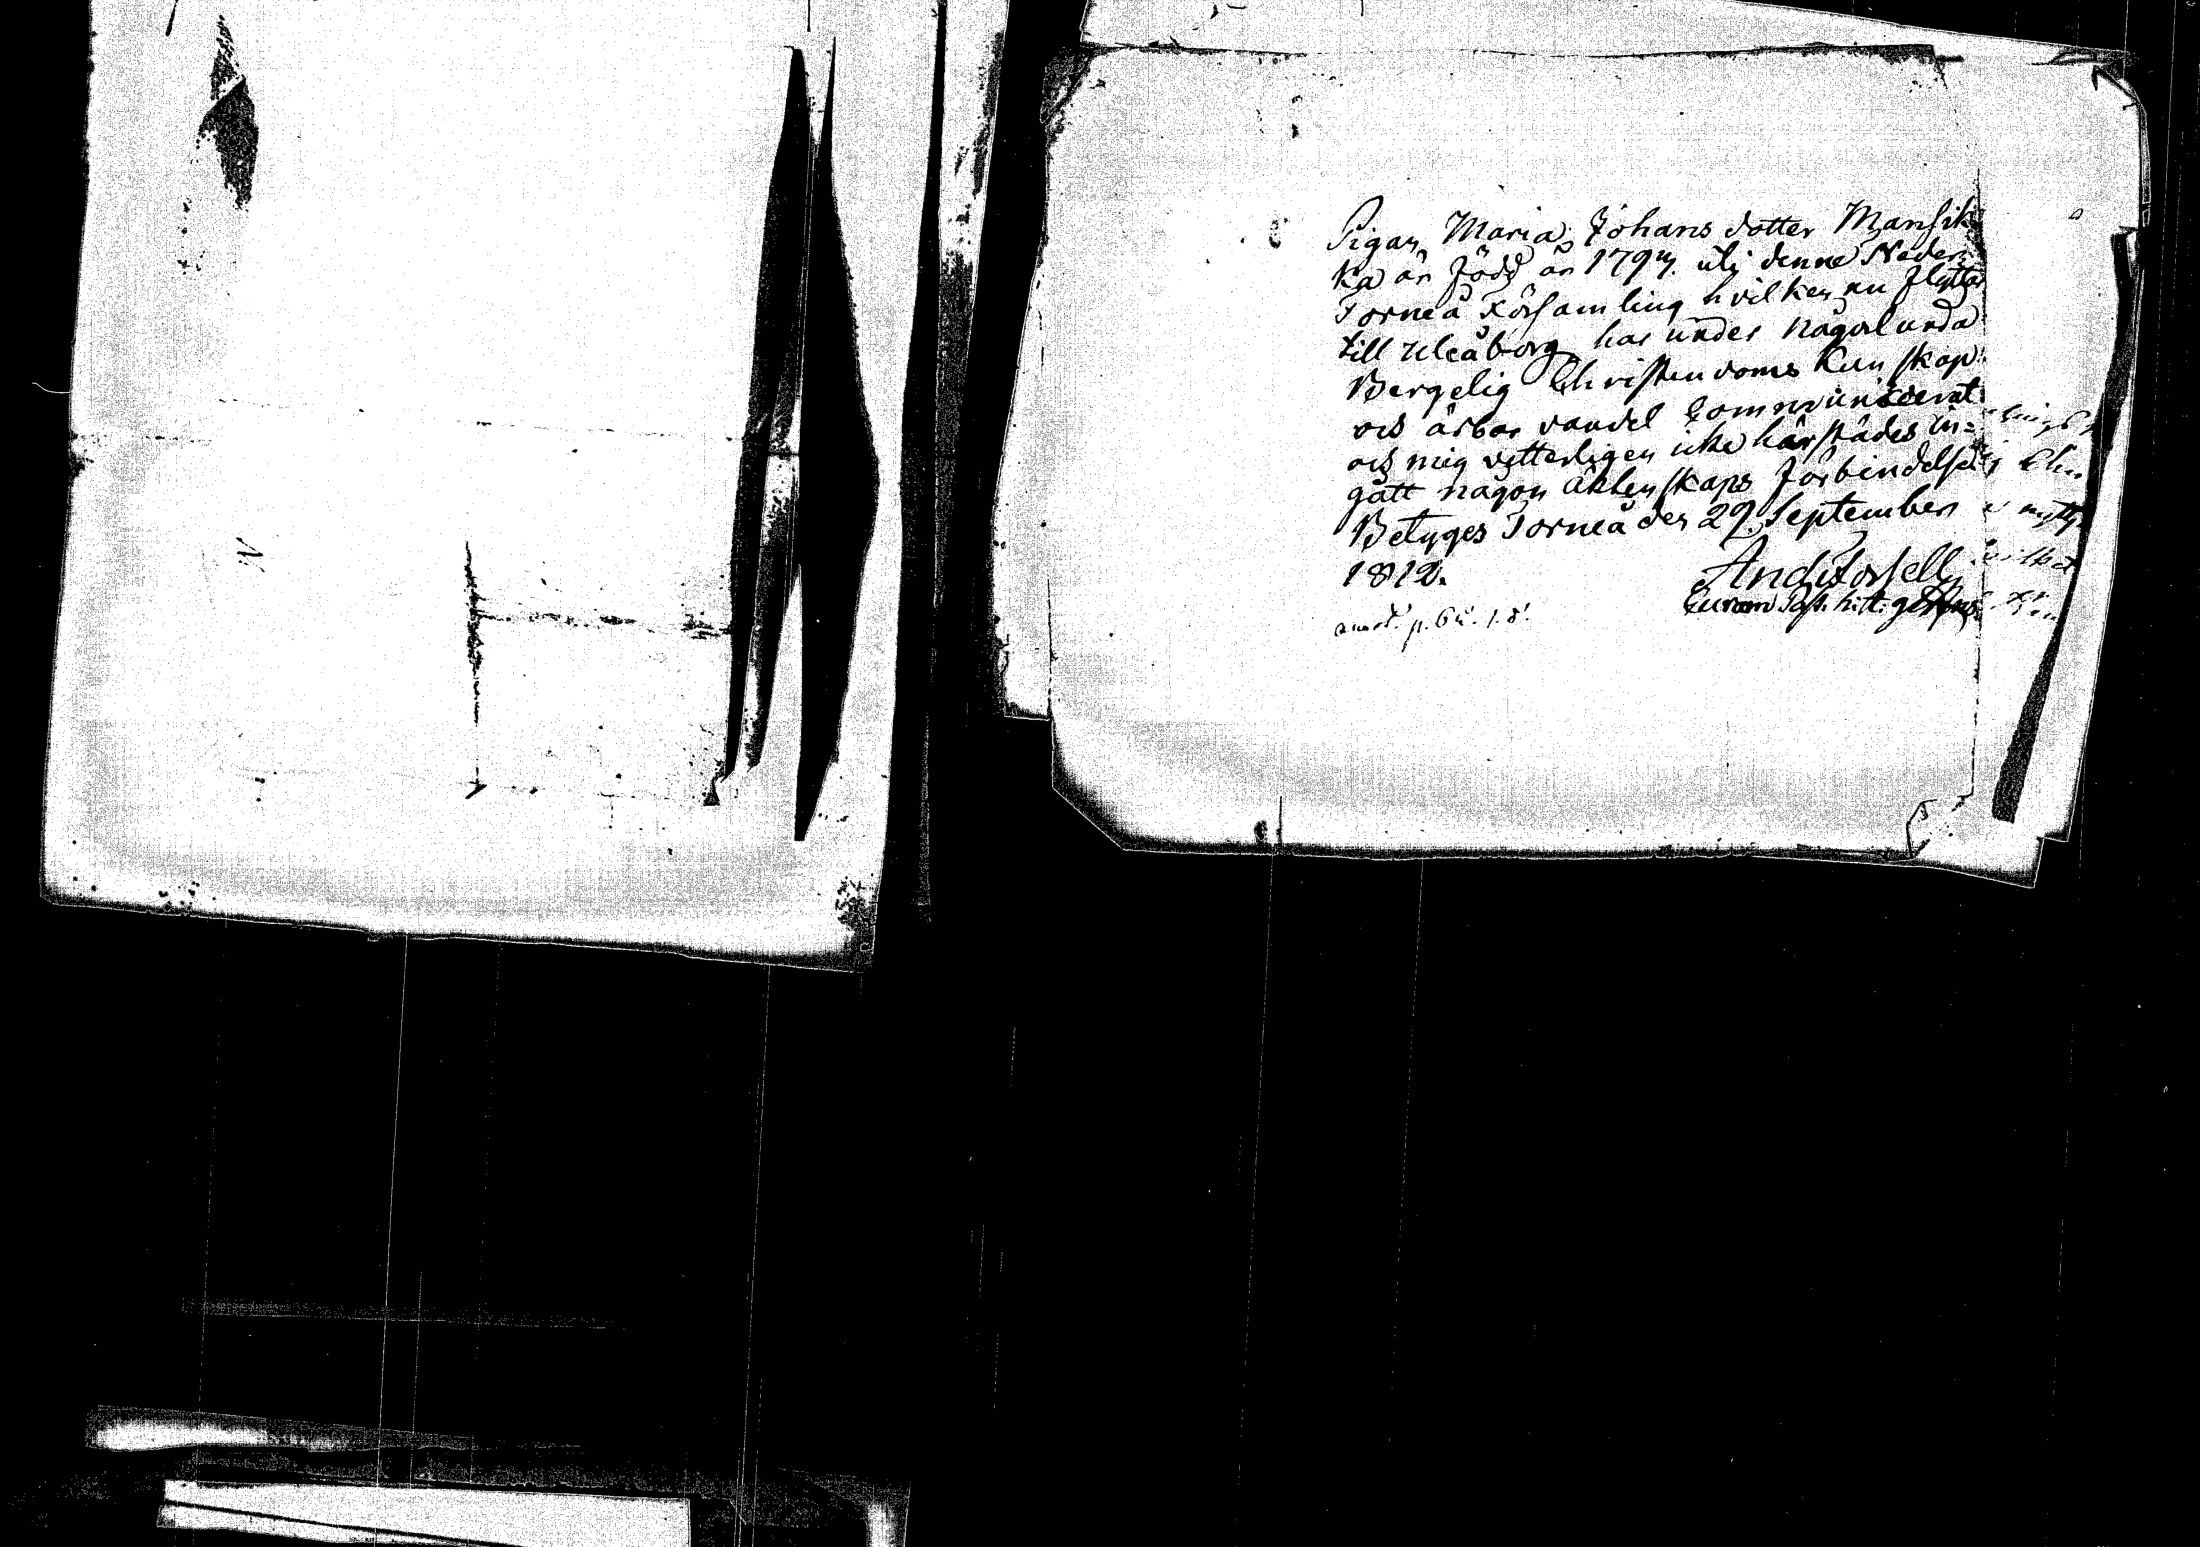 Pigan Maria Johans dotter Mansik
ka är född år 1794. uti denne Neder
Torneå Församling hvilken nu flyttar
till Uleåborg, har under någorlunda
Bergelig Christendoms Kunskap
och ärbar vandel Communicerat
och mig vetterligen icke härstädes in=
gått någon äktenskaps förbindelse
Betyges Torneå den 29 September
1812.
And Forsell